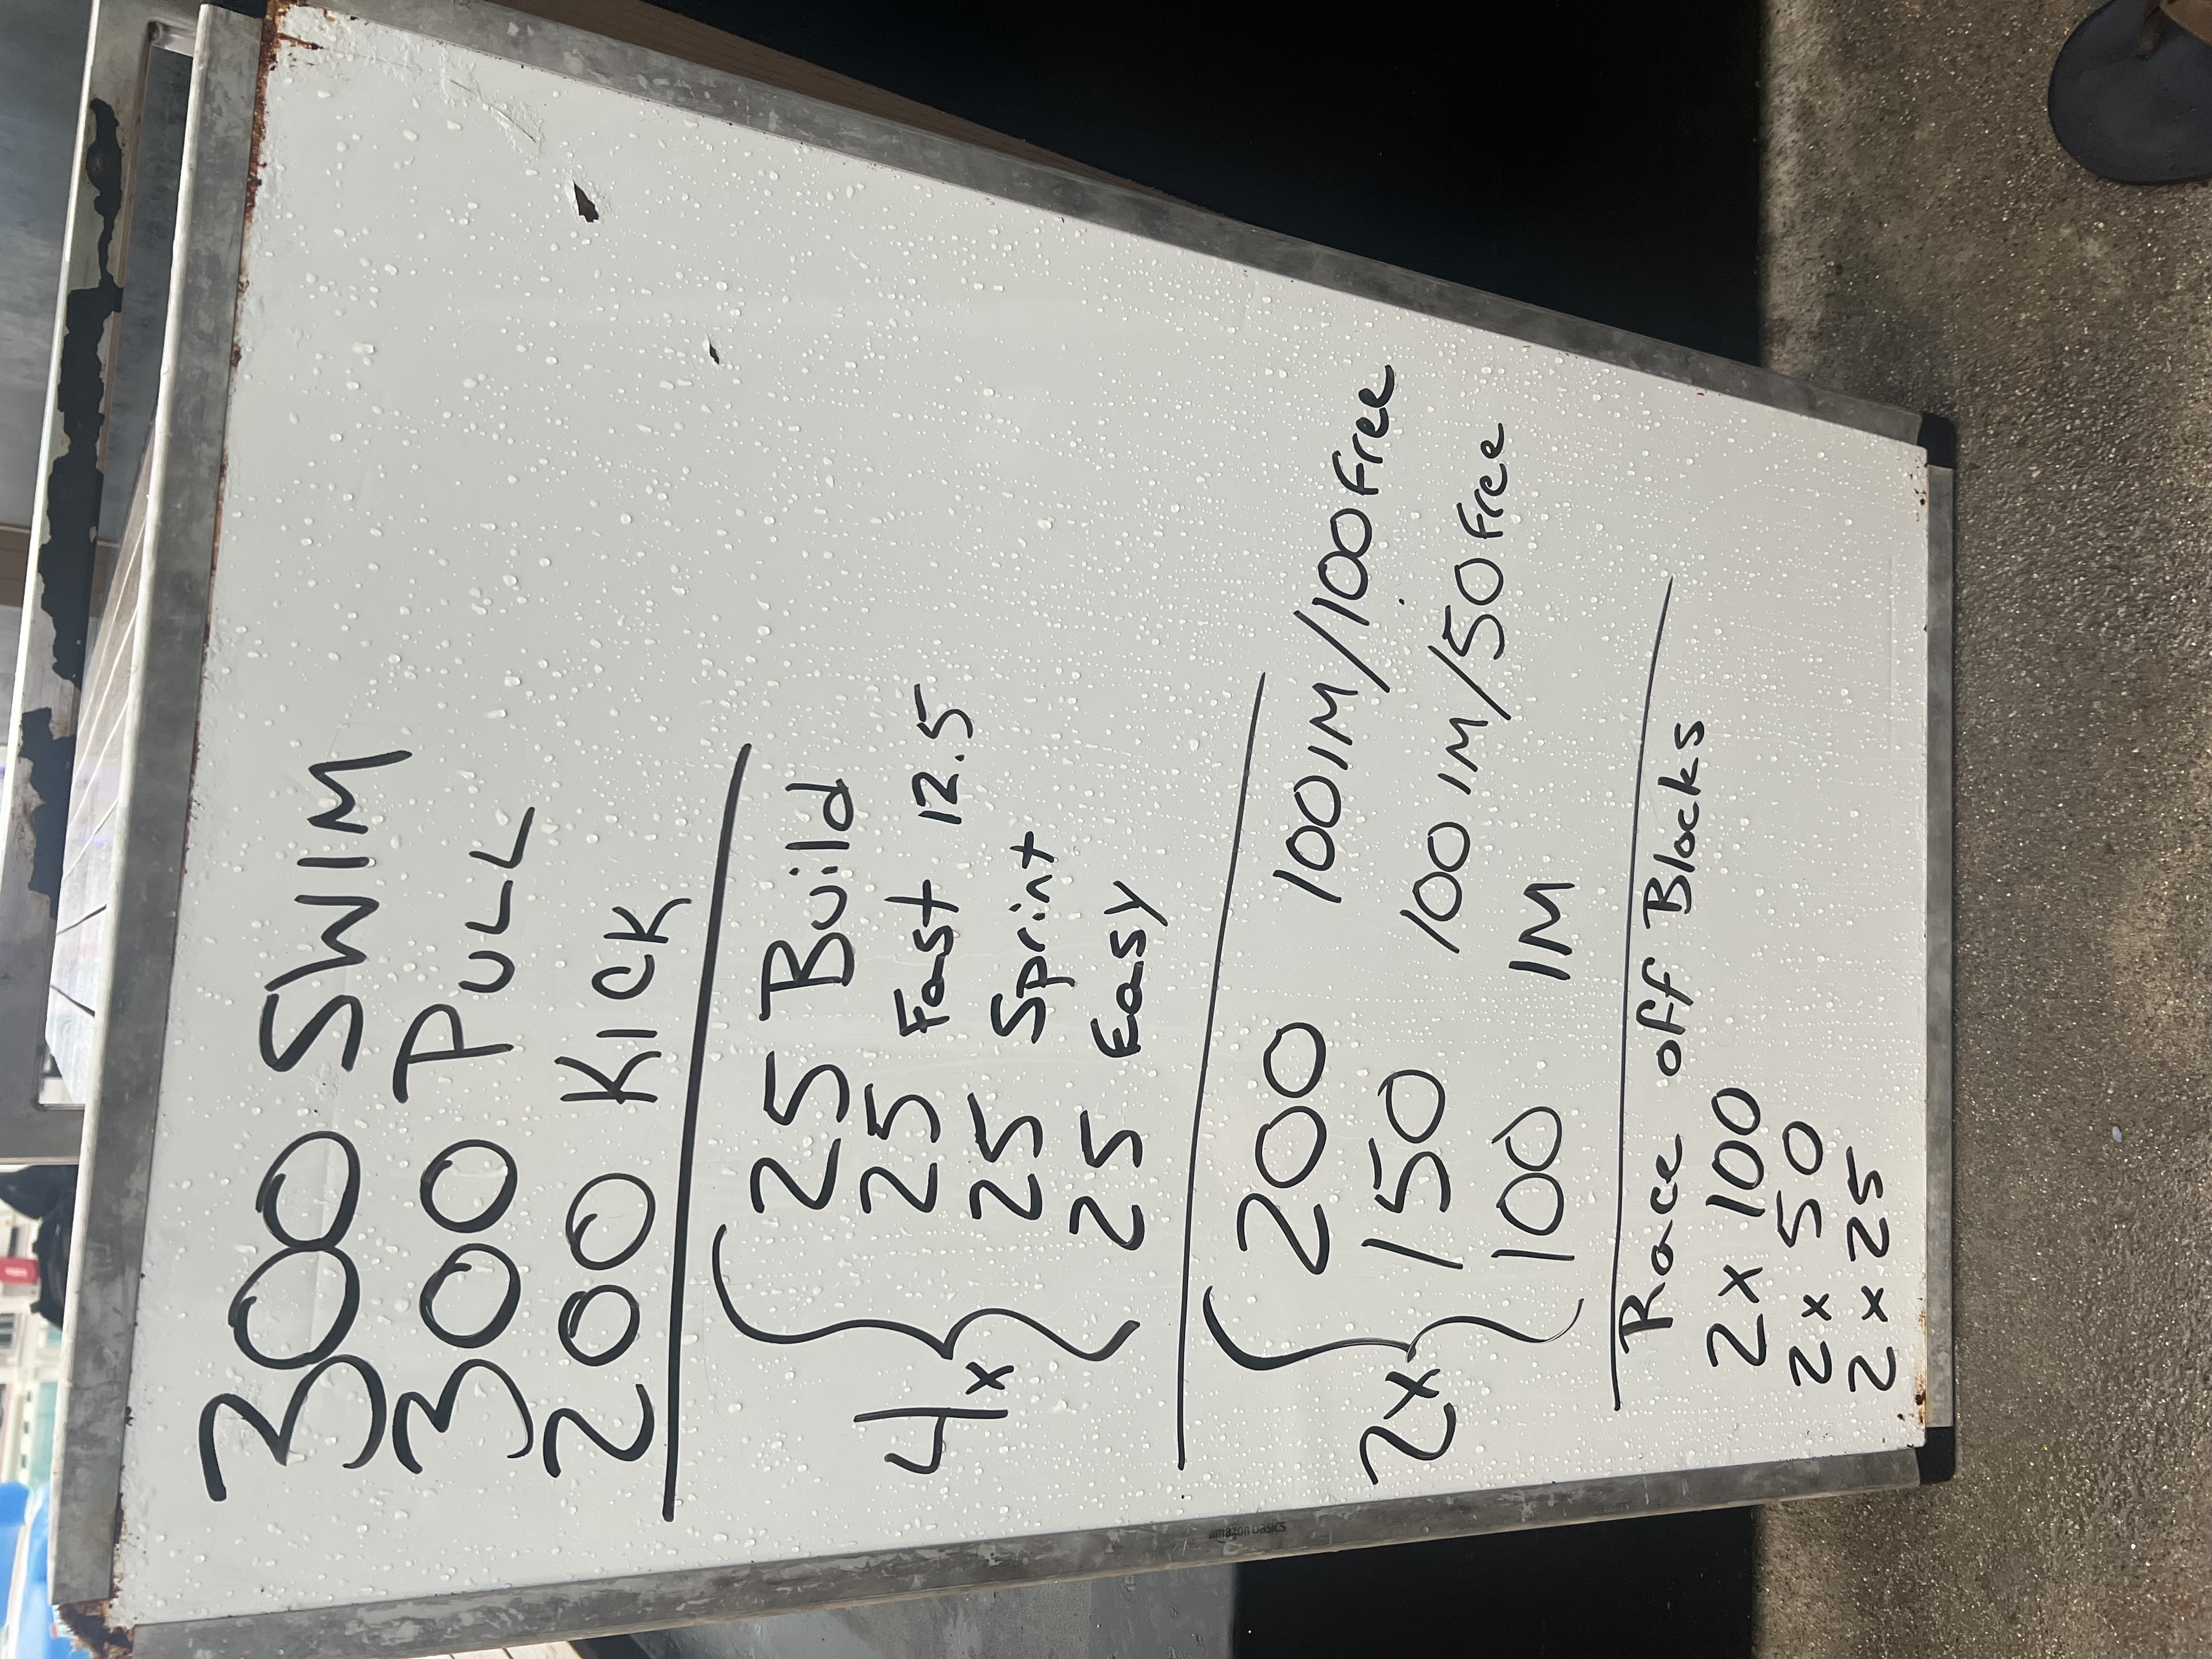 300 SWIM
300 PULL
200 KICK
4x { 25 Build
25 Fast 12.5
25 Sprint
25 Easy
2x { 200 100 IM/100 Free
150 100 IM/50 Free
100 IM
Race off Blocks
2 x 100
2 x 50
2 x 25
amazon basics